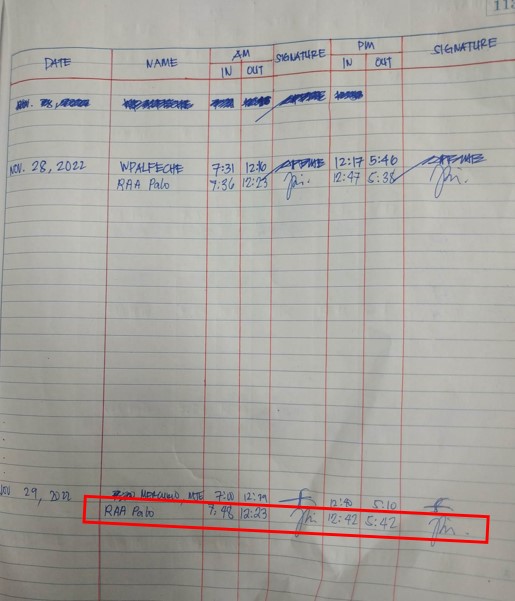 113
AM PM
DATE NAME SIGNATURE SIGNATURE
IN OUT IN OUT
NOV. 28, 2022 WPALPECHE 7:31 12:16 12:17 5:46
RAA Palo 7:36 12:23 12:47 5:38
NOV 29, 2022 7:00 12:29 12:40 5:10
RAA Palo 7:48 12:23 12:42 5:42